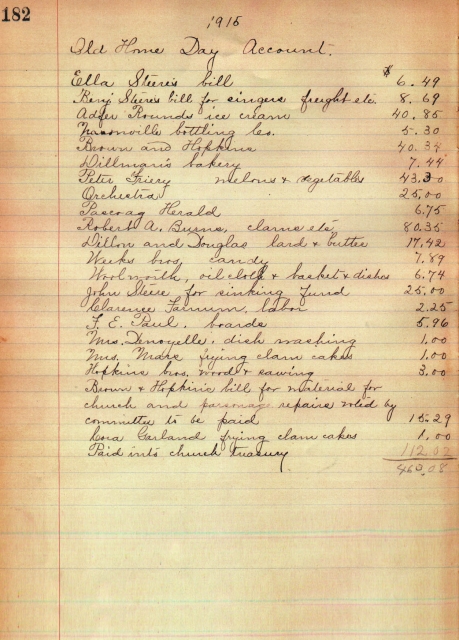 182
1915
Old Home Day Account.
Ella Steere's bill $ 6.49
Benj Steere's bill for singers freight etc. 8.69
Adfer Rounds ice cream 40.85
Nasonville bottling Co. 5.30
Brown and Hopkins 40.34
Dillman's bakery 7.44
Peter Friery melons & vegetables 43.30
Orchestra 25.00
Pascoag Herald 6.75
Robert A. Burns, clams etc. 80.35
Dillon and Douglas lard & butter 17.42
Weeks bros, candy 7.89
Woolworth, oil cloth & basket & dishes 6.74
John Steere for sinking fund 25.00
Clarence Farnum, labor 2.25
F. E. Paul, boards 5.96
Mrs. Denoyelle, dish washing 1.00
Mrs. frying clam cakes 1.00
Hopkins bros, wood & sawing 3.00
Brown & Hopkins bill for material for
church and parsonage repairs voted by
committee to be paid 15.29
Cora Garland frying clam cakes 1.00
Paid into church treasury 112.02
460.08